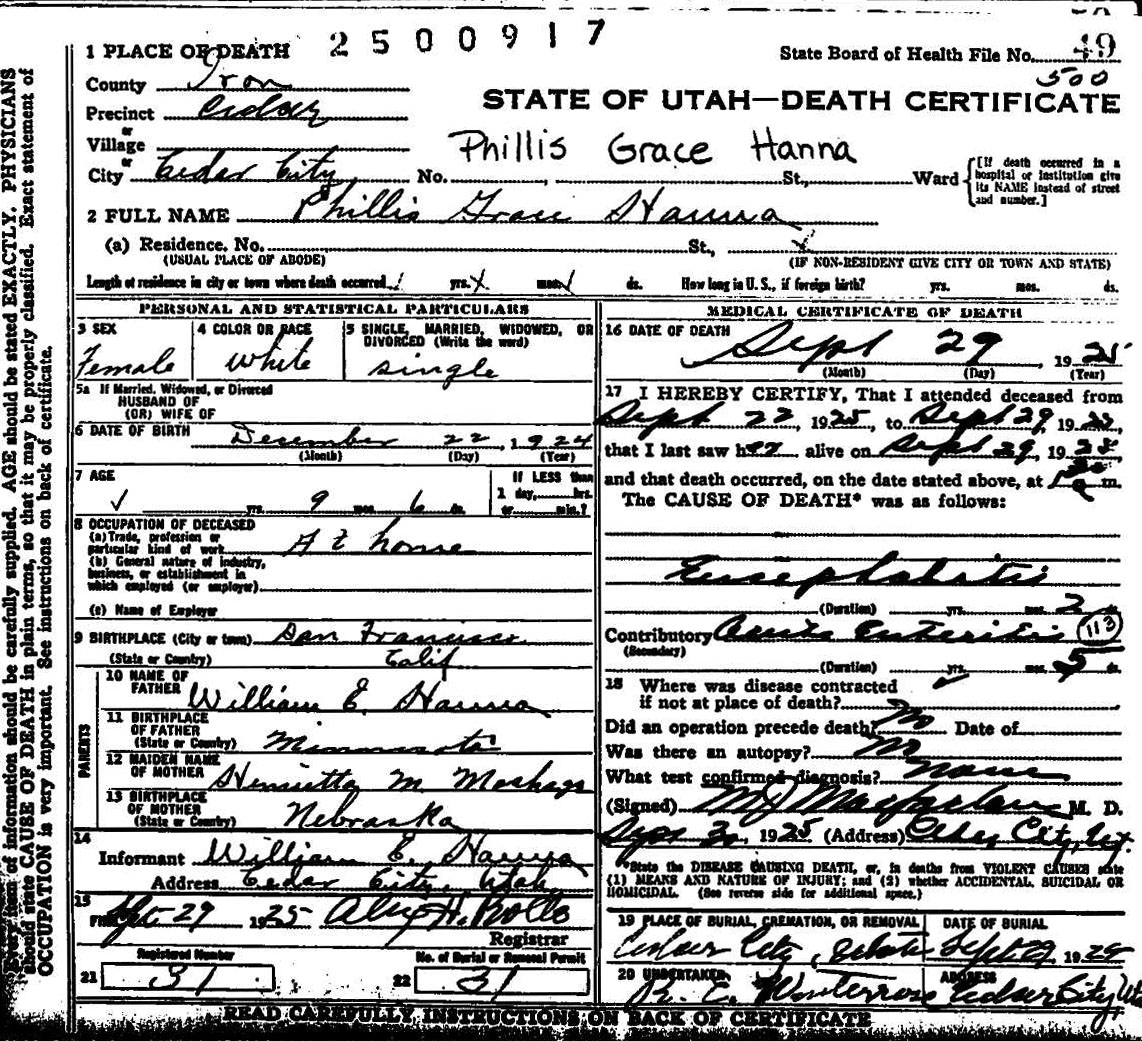 1 PLACE OF DEATH 2500917 State Board of Health File No. 49
County Iron 500
Precinct Cedar STATE OF UTAH—DEATH CERTIFICATE
or
Village Phillis Grace Hanna
or
City Cedar City, No. St., Ward [If death occurred in a hospital or institution give its NAME instead of street and number.]
2 FULL NAME Phillis Grace Hanna
(a) Residence. No. St.,
(USUAL PLACE OF ABODE) (IF NON-RESIDENT GIVE CITY OR TOWN AND STATE)
Length of residence in city or town where death occurred yrs. mos. ds. How long in U. S., if foreign birth? yrs. mos. ds.
PERSONAL AND STATISTICAL PARTICULARS
3 SEX 4 COLOR OR RACE 5 SINGLE, MARRIED, WIDOWED, OR
DIVORCED (Write the word)
Female White single
5a If Married, Widowed, or Divorced
HUSBAND OF
(OR) WIFE OF
6 DATE OF BIRTH December 22, 1924
(Month) (Day) (Year)
7 AGE If LESS than
1 day, hrs.
yrs. 9 mos. 6 ds. or min.?
8 OCCUPATION OF DECEASED
(a) Trade, profession or
particular kind of work At home
(b) General nature of industry,
business, or establishment in
which employed (or employer)
(c) Name of Employer
9 BIRTHPLACE (City or town) San Francisco
(State or Country) Calif
PARENTS
10 NAME OF
FATHER William E. Hanna
11 BIRTHPLACE
OF FATHER
(State or Country) Minnesota
12 MAIDEN NAME
OF MOTHER Henrietta M
13 BIRTHPLACE
OF MOTHER
(State or Country) Nebraska
14
Informant William E. Hanna
Address Cedar City, Utah
15
Filed Sept. 29 1925 Alex H. Rollo
Registrar
Registered Number No. of Burial or Removal Permit
21 31 22 31
MEDICAL CERTIFICATE OF DEATH
16 DATE OF DEATH
Sept 29, 1925
(Month) (Day) (Year)
17 I HEREBY CERTIFY, That I attended deceased from
Sept 22, 1925, to Sept 29, 19
that I last saw her alive on Sept 29, 19
and that death occurred, on the date stated above, at m.
The CAUSE OF DEATH* was as follows:
Encephalitis
(Duration) yrs. mos. 2 ds.
Contributory Acute Enteritis 113
(Secondary)
(Duration) yrs. mos. 5 ds.
18 Where was disease contracted
if not at place of death?
Did an operation precede death? No Date of
Was there an autopsy? No
What test confirmed diagnosis? None
(Signed) M J Macfarlane M. D.
Sept 30, 1925 (Address) Cedar City, Ut.
*State the DISEASE CAUSING DEATH, or, in deaths from VIOLENT CAUSES state
(1) MEANS AND NATURE OF INJURY; and (2) whether ACCIDENTAL, SUICIDAL OR
HOMICIDAL. (See reverse side for additional space.)
19 PLACE OF BURIAL, CREMATION, OR REMOVAL DATE OF BURIAL
Cedar City, Utah Sept 29 1925
20 UNDERTAKER ADDRESS
Cedar City, Ut
READ CAREFULLY INSTRUCTIONS ON BACK OF CERTIFICATE
Every item of information should be carefully supplied. AGE should be stated EXACTLY. PHYSICIANS
should state CAUSE OF DEATH in plain terms, so that it may be properly classified. Exact statement of
OCCUPATION is very important. See instructions on back of certificate.